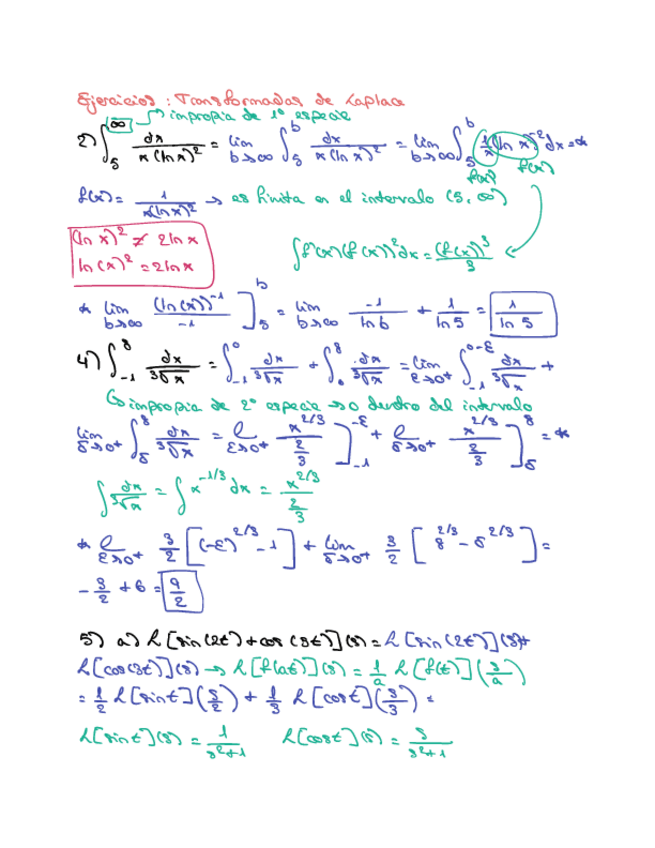 Ejercicios : Transformadas de Laplace
impropia de 1ª especie
2) ∫₅^∞ dx / x(ln x)² = lim b→∞ ∫₅^b dx / x(ln x)² = lim b→∞ ∫₅^b (1/x)(ln x)⁻² dx = *
f'(x) f(x)
f(x) = 1 / x(ln x)² → es finita en el intervalo (5, ∞)
(ln x)² ≠ 2 ln x
ln (x)² = 2 ln x
∫ f'(x) (f(x))² dx = (f(x))³ / 3
* lim b→∞ (ln(x))⁻¹ / -1 ]₅^b = lim b→∞ -1 / ln b + 1 / ln 5 = 1 / ln 5
4) ∫₋₁^8 dx / ³√x = ∫₋₁^0 dx / ³√x + ∫₀^8 dx / ³√x = lim ε→0⁺ ∫₋₁^0-ε dx / ³√x +
impropia de 2ª especie → 0 dentro del intervalo
lim δ→0⁺ ∫_δ^8 dx / ³√x = l ε→0⁺ x^2/3 / (2/3) ]₋₁^-ε + l δ→0⁺ x^2/3 / (2/3) ]_δ^8 = *
∫ dx / ³√x = ∫ x^-1/3 dx = x^2/3 / (2/3)
* l ε→0⁺ 3/2 [(-ε)^2/3 - 1] + lim δ→0⁺ 3/2 [8^2/3 - δ^2/3] =
- 3/2 + 6 = 9/2
5) a) L[sin(2t) + cos(3t)](s) = L[sin(2t)](s) +
L[cos(3t)](s) → L[f(at)](s) = 1/a L[f(t)](s/a)
= 1/2 L[sin t](s/2) + 1/3 L[cos t](s/3) =
L[sin t](s) = 1 / s²+1 L[cos t](s) = s / s²+1